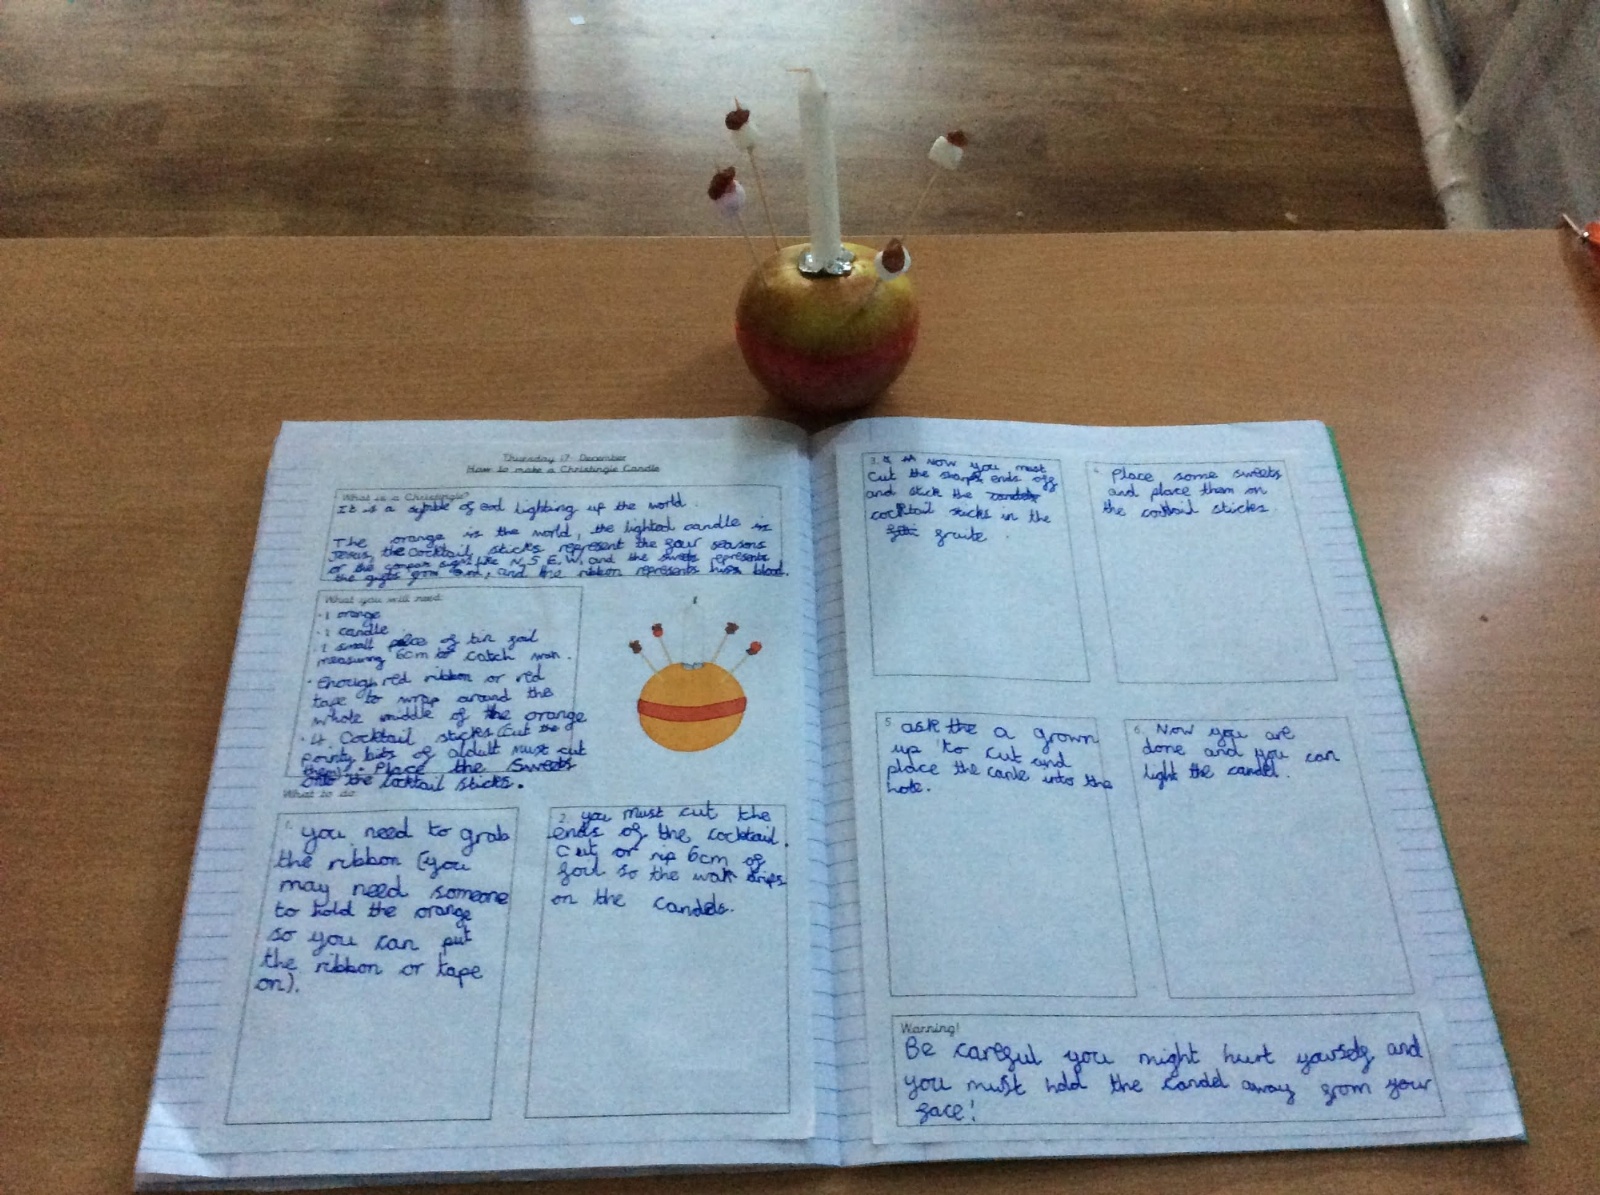 Thursday 17 December
How to make a Christingle Candle
What is a Christingle?
It is a symble of God lighting up the world.
The orange is the world, the lighted candle is
Jesus, the cocktail sticks represent the four seasons
or the compas sign like N, S, E, W. and the sweets represents
the gifts from God, and the ribbon represents his blood.
What you will need
· 1 orange
· 1 candle
1 small piece of tin foil
measuring 6cm to catch wax.
· Enough red ribbon or red
tape to wrap around the
whole middle of the orange
· 4 Cocktail sticks (cut the
pointy bits of aldult must cut
them) · Place the sweets
onto the cocktail sticks.
What to do
1. you need to grab
the ribbon (you
may need someone
to hold the orange
so you can put
the ribbon or tape
on).
2. you must cut the
ends of the cocktail.
Cut or rip 6cm of
foil so the wax drips
on the candels.
3. Now you must
Cut the sharp ends off
and stick the
cocktail sticks in the
fruite.
4. Place some sweets
and place them on
the cocktail sticks.
5. ask the a grown
up to cut and
place the canle into the
hole.
6. Now you are
done and you can
light the candel.
Warning!
Be careful you might hurt yourself and
you must hold the candel away from your
face!